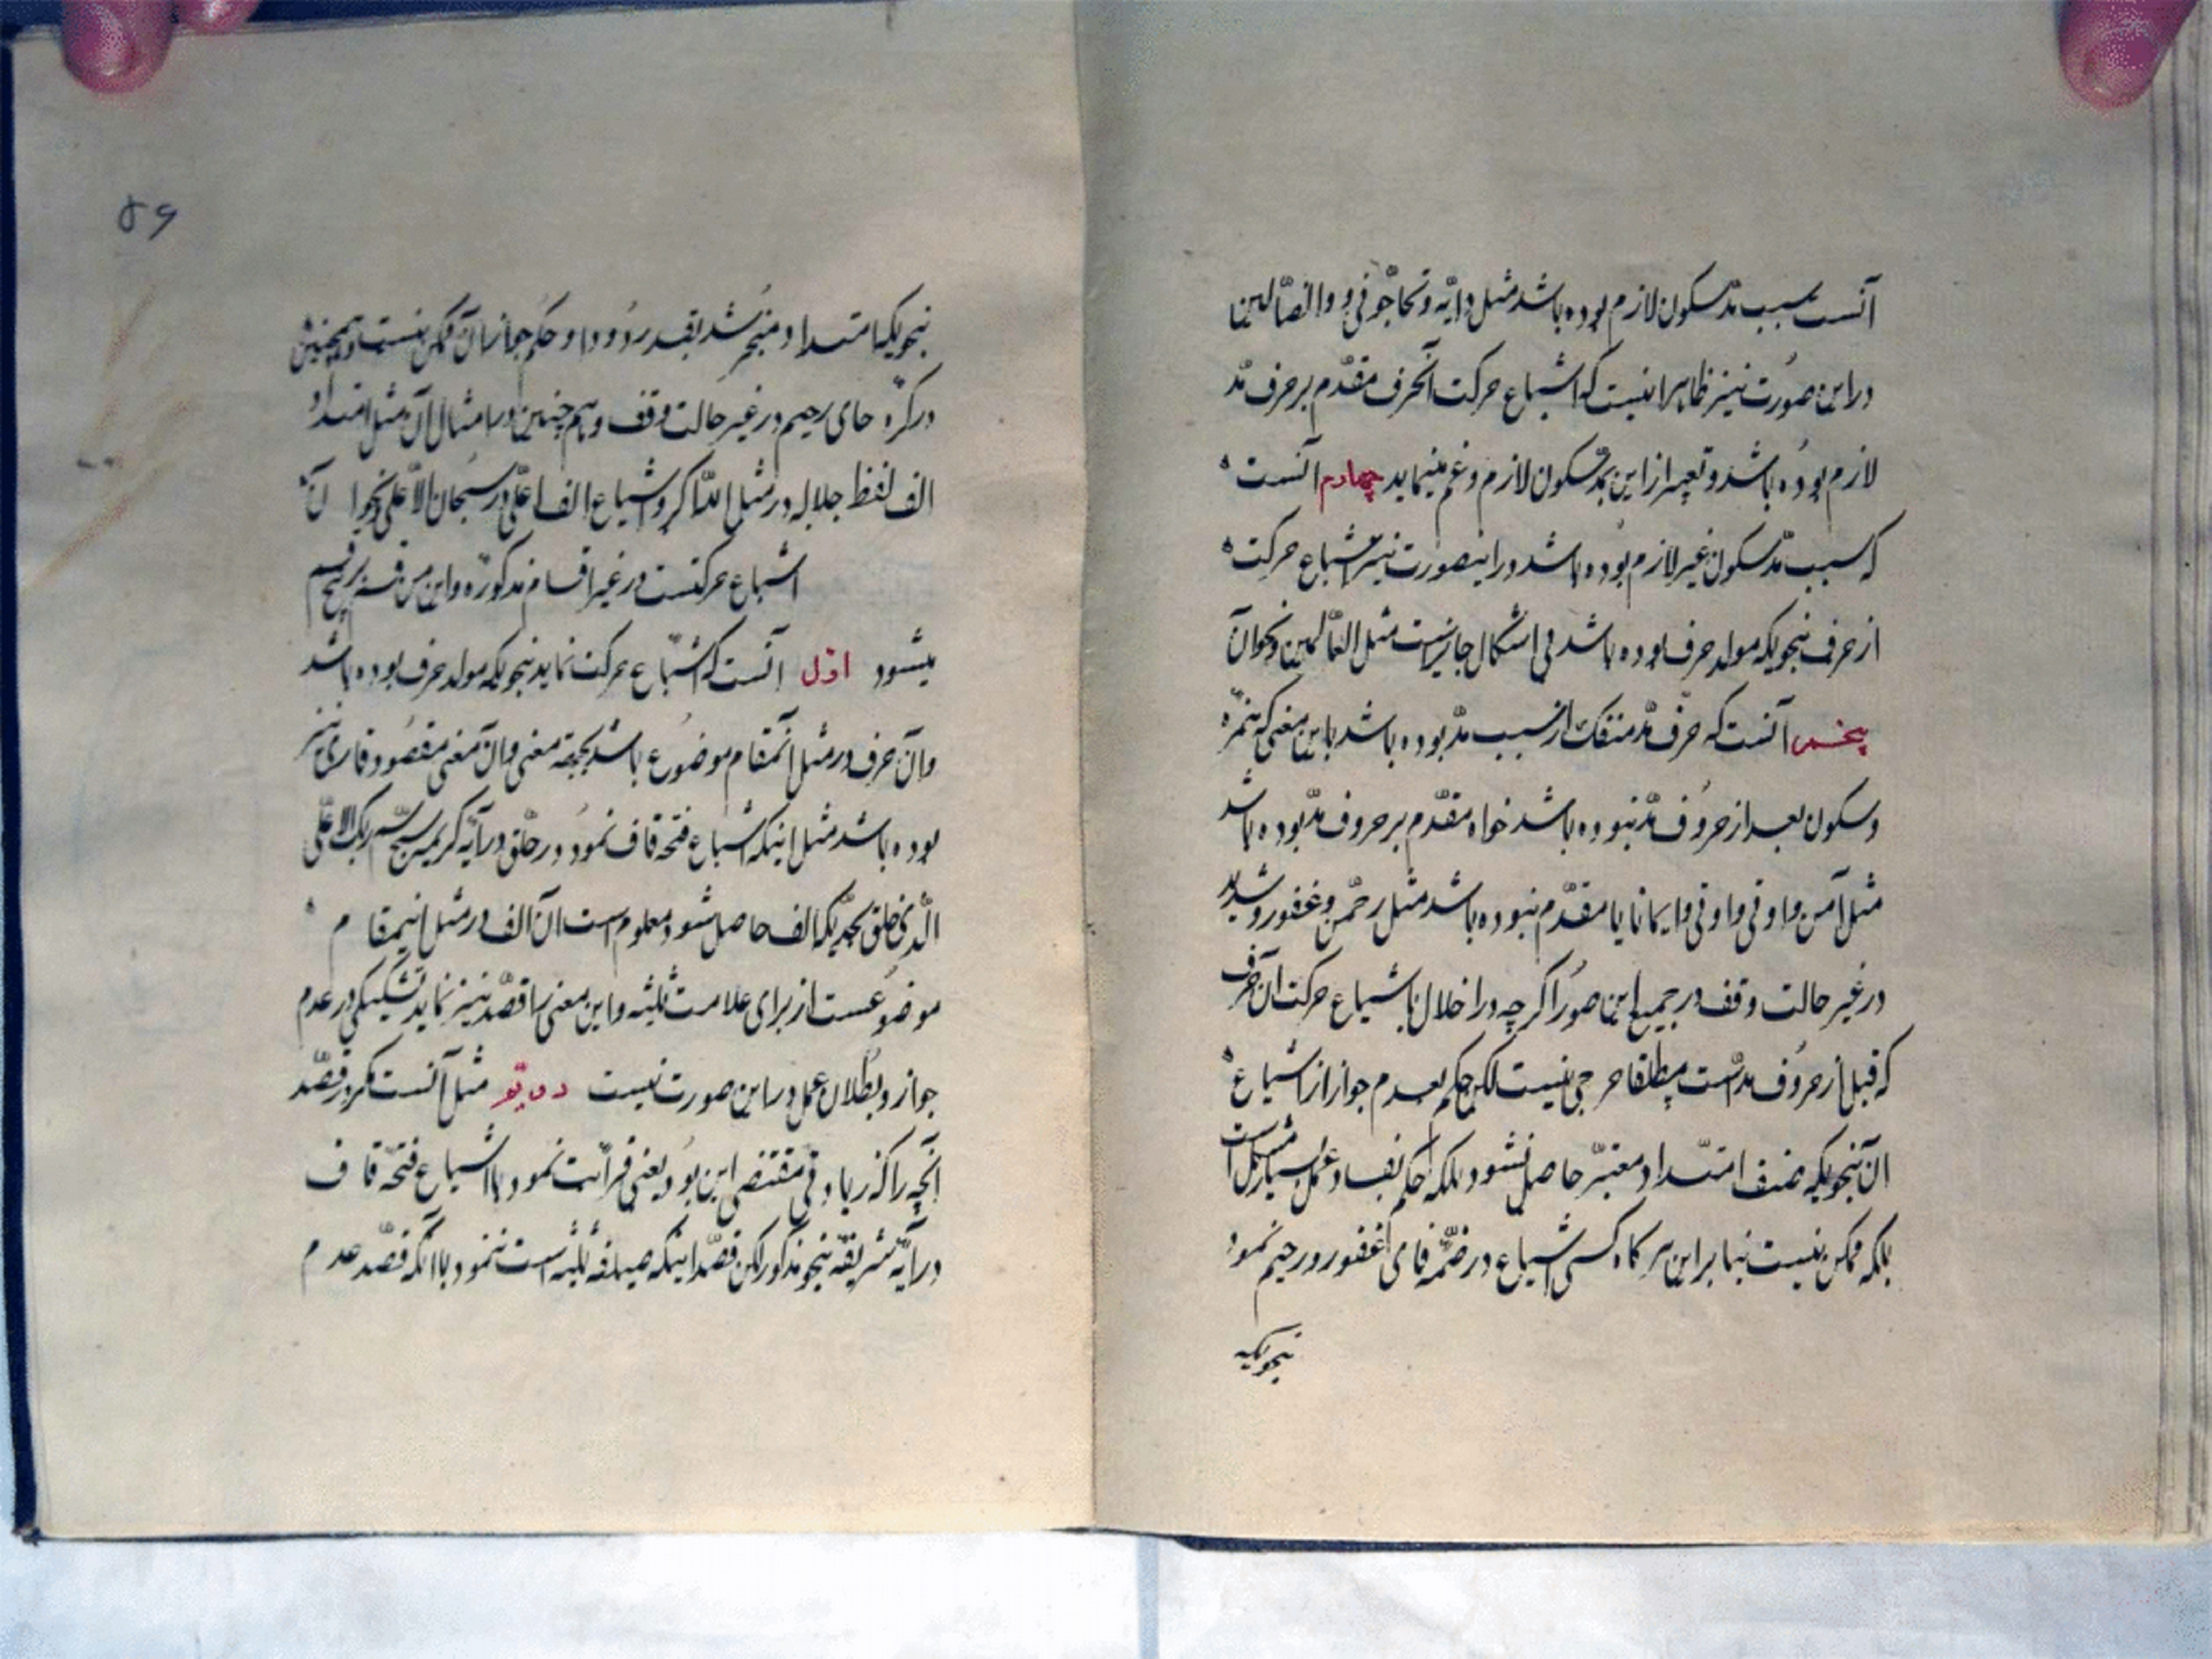 آنست سبب مدّ سکون لازم بوده باشد مثل دابّه و تحاجّونی و والضّالین
در این صورت نیز ظاهرا نیست که اشباع حرکت آنحرف مقدّم بر حرف مدّ
لازم بوده باشد و تعبیر از این بمدّ سکون لازم مینماید چهارم آنست
که سبب مدّ سکون غیر لازم بوده باشد در اینصورت نیز اشباع حرکت
از حرف بنحویکه مولد حرف بوده باشد فی اشکال جایز نیست مثل العالمین و نحو آن
پنجم آنست که حرف مدّ منفک از سبب مدّ بوده باشد باین معنی که همزه
و سکون بعد از حروف مدّ نبوده باشد خواه مقدّم بر حروف مدّ بوده باشد
مثل آمن و اوتی و ایمانا یا مقدّم نبوده باشد مثل رحمن و غفور و شدید
در غیر حالت وقف در جمیع این صور اگرچه در اخلال باشباع حرکت آن حرف
که قبل از حروف مدّ است مطلقا حرجی نیست لکن حکم بعدم جواز از اشباع
آن بنحویکه ضعف امتداد معتبر حاصل نشود بلکه حکم بفساد عمل بسیار مشکل است
بلکه ممکن نیست بنا بر این هرگاه کسی اشباع در ضمّه فای غفور و رحیم نمود
بنحویکه
۵۶
بنحویکه امتداد منجر شد بقدر دو واو حکم بجواز آن ممکن نیست و همچنین
در کره حای رحیم در غیر حالت وقف و هم چنین در امثال آن مثل امتداد
الف لفظ جلاله در مثل الله اکبر و اشباع الف اعلی در سبحان الاعلی و نحو آن
اشباع حرکتست در غیر اقسام مذکوره و این بر پنج قسم
میشود اوّل آنست که اشباع حرکت نماید بنحویکه مولد حرف بوده باشد
و آن حرف در مثل آنمقام موضوع باشد بجهة معنی و آن معنی مقصود قاری نیز
بوده باشد مثل اینکه اشباع فتحه قاف نمود در خلق در آیه کریمه سبّح اسم ربک الاعلی
الّذی خلق بحدّیکه الف حاصل شود معلوم است آن الف در مثل اینمقام
موضوعست از برای علامت تثنیه و این معنی را قصد نیز نماید تشکیکی در عدم
جواز و بطلان عمل در این صورت نیست دویّم مثل آنست مگر در قصد
آنچه را که زیادتی مقتضی این بود یعنی قرائت نمود با اشباع فتحه قاف
در آیه شریفه بنحو مذکور لکن قصد اینکه صیغه تثنیه است ننمود با آنکه قصد عدم